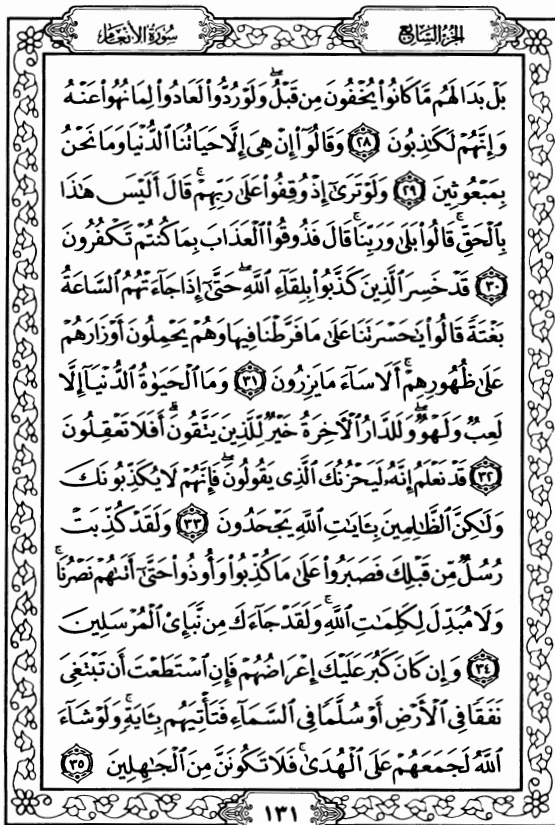 الجزء السابع
سورة الأنعام
بَلْ بَدَا لَهُم مَّا كَانُوا۟ يُخْفُونَ مِن قَبْلُۖ وَلَوْ رُدُّوا۟ لَعَادُوا۟ لِمَا نُهُوا۟ عَنْهُ
وَإِنَّهُمْ لَكَٰذِبُونَ ﴿٢٨﴾ وَقَالُوٓا۟ إِنْ هِىَ إِلَّا حَيَاتُنَا ٱلدُّنْيَا وَمَا نَحْنُ
بِمَبْعُوثِينَ ﴿٢٩﴾ وَلَوْ تَرَىٰٓ إِذْ وُقِفُوا۟ عَلَىٰ رَبِّهِمْۚ قَالَ أَلَيْسَ هَٰذَا
بِٱلْحَقِّۚ قَالُوا۟ بَلَىٰ وَرَبِّنَاۚ قَالَ فَذُوقُوا۟ ٱلْعَذَابَ بِمَا كُنتُمْ تَكْفُرُونَ
﴿٣٠﴾ قَدْ خَسِرَ ٱلَّذِينَ كَذَّبُوا۟ بِلِقَآءِ ٱللَّهِۖ حَتَّىٰٓ إِذَا جَآءَتْهُمُ ٱلسَّاعَةُ
بَغْتَةً قَالُوا۟ يَٰحَسْرَتَنَا عَلَىٰ مَا فَرَّطْنَا فِيهَا وَهُمْ يَحْمِلُونَ أَوْزَارَهُمْ
عَلَىٰ ظُهُورِهِمْۚ أَلَا سَآءَ مَا يَزِرُونَ ﴿٣١﴾ وَمَا ٱلْحَيَوٰةُ ٱلدُّنْيَآ إِلَّا
لَعِبٌ وَلَهْوٌۖ وَلَلدَّارُ ٱلْءَاخِرَةُ خَيْرٌ لِّلَّذِينَ يَتَّقُونَۗ أَفَلَا تَعْقِلُونَ
﴿٣٢﴾ قَدْ نَعْلَمُ إِنَّهُۥ لَيَحْزُنُكَ ٱلَّذِى يَقُولُونَۖ فَإِنَّهُمْ لَا يُكَذِّبُونَكَ
وَلَٰكِنَّ ٱلظَّٰلِمِينَ بِـَٔايَٰتِ ٱللَّهِ يَجْحَدُونَ ﴿٣٣﴾ وَلَقَدْ كُذِّبَتْ
رُسُلٌ مِّن قَبْلِكَ فَصَبَرُوا۟ عَلَىٰ مَا كُذِّبُوا۟ وَأُوذُوا۟ حَتَّىٰٓ أَتَىٰهُمْ نَصْرُنَاۚ
وَلَا مُبَدِّلَ لِكَلِمَٰتِ ٱللَّهِۚ وَلَقَدْ جَآءَكَ مِن نَّبَإِى۟ ٱلْمُرْسَلِينَ
﴿٣٤﴾ وَإِن كَانَ كَبُرَ عَلَيْكَ إِعْرَاضُهُمْ فَإِنِ ٱسْتَطَعْتَ أَن تَبْتَغِىَ
نَفَقًا فِى ٱلْأَرْضِ أَوْ سُلَّمًا فِى ٱلسَّمَآءِ فَتَأْتِيَهُم بِـَٔايَةٍۚ وَلَوْ شَآءَ
ٱللَّهُ لَجَمَعَهُمْ عَلَى ٱلْهُدَىٰۚ فَلَا تَكُونَنَّ مِنَ ٱلْجَٰهِلِينَ ﴿٣٥﴾
١٣١